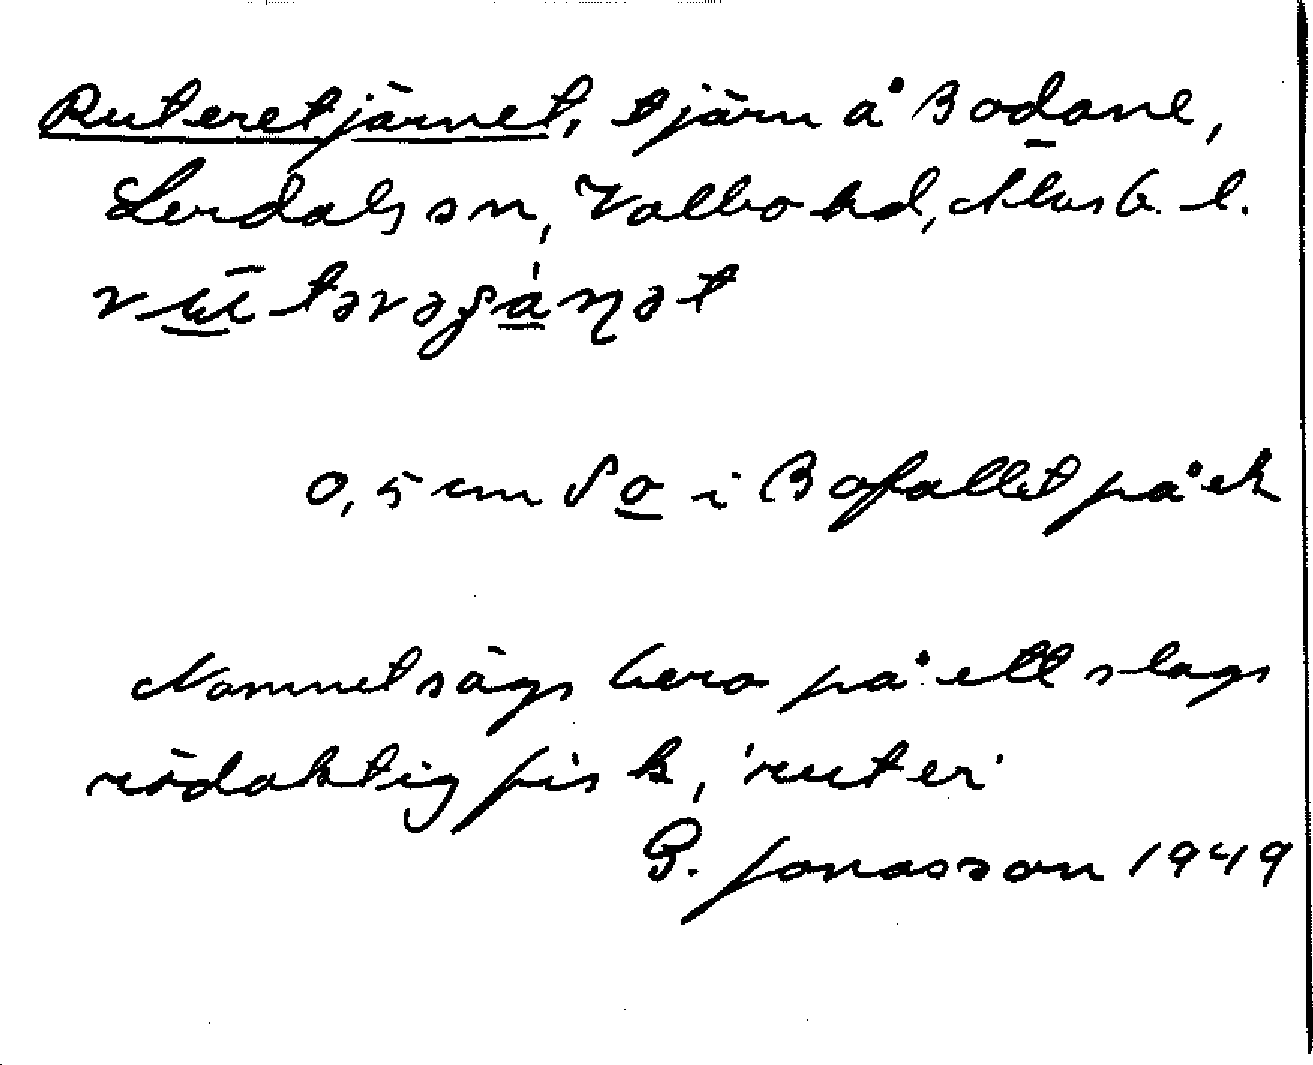 Ruteretjärnet, tjärn å Bodane,
Lerdals sn, Valbo hd, Älvsb. l.
0,5 cm So i Bofallet på ek
Namnet sägs bero på ett slags
rödaktig fisk, 'ruter'
G. Jonasson 1949